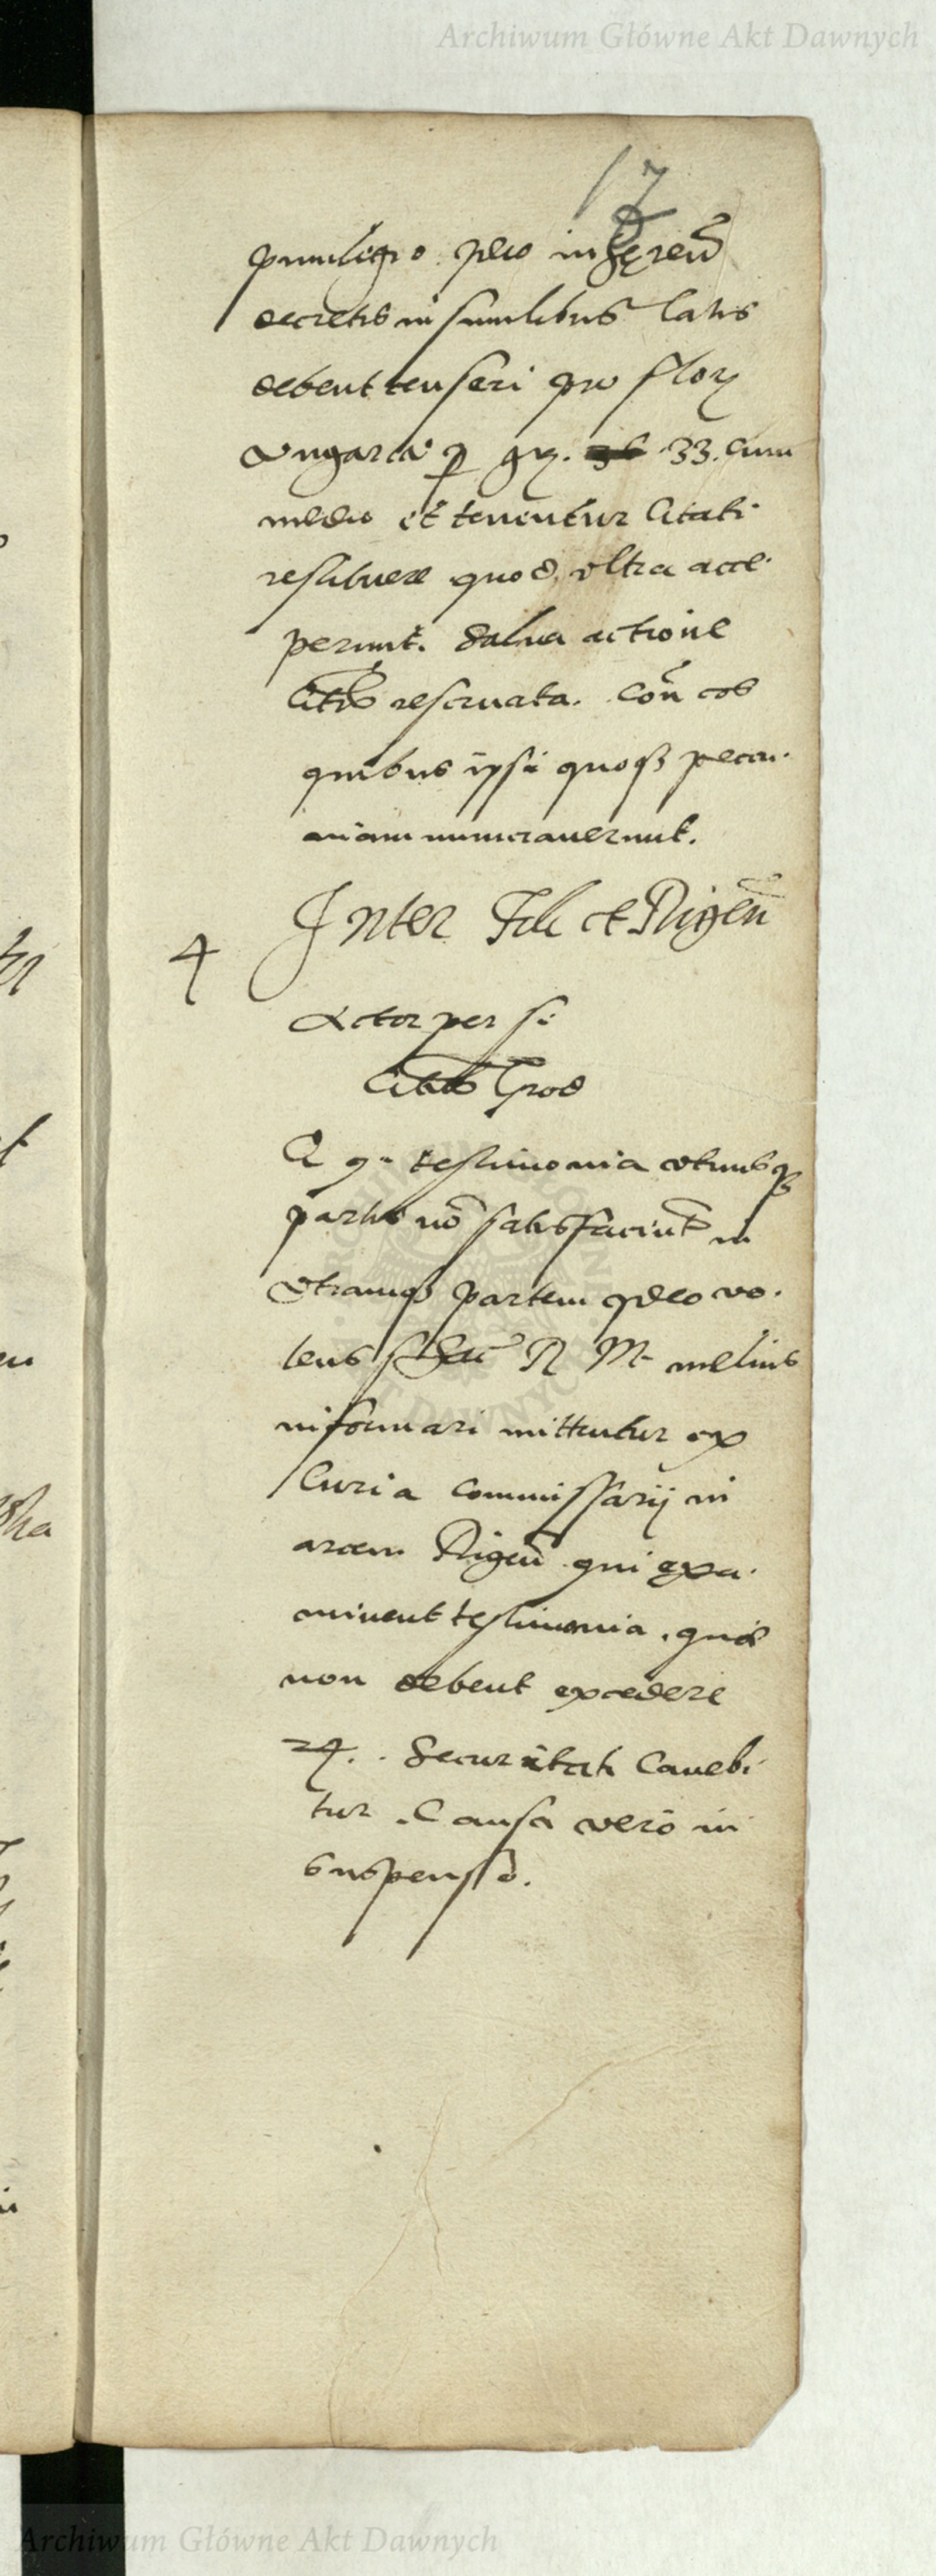 Archiwum Główne Akt Dawnych
17
privilegio ideo inherend
decretis in similibus latis
debent censeri pro flor
Ungaric p gr. 33. cum
medio et tenentur Citati
restituere quod ultra acce
perunt. Salua actione
Citatis reseruata. Con eos
quibus ipsi quoq pecu
niam numerauerunt.
4
Inter et Rigen
Actor per se
Citatus Grod
Q testimonia utriusq
partis no satisfaciunt in
utramq partem ideo vo
lens S R M melius
informari mittuntur ex
Curia Commissarij in
arcem Rigen qui exa
minent testimonia. quae
non debent excedere
24. Securitati Cauebi
tur. Causa vero in
suspenso.
Archiwum Główne Akt Dawnych